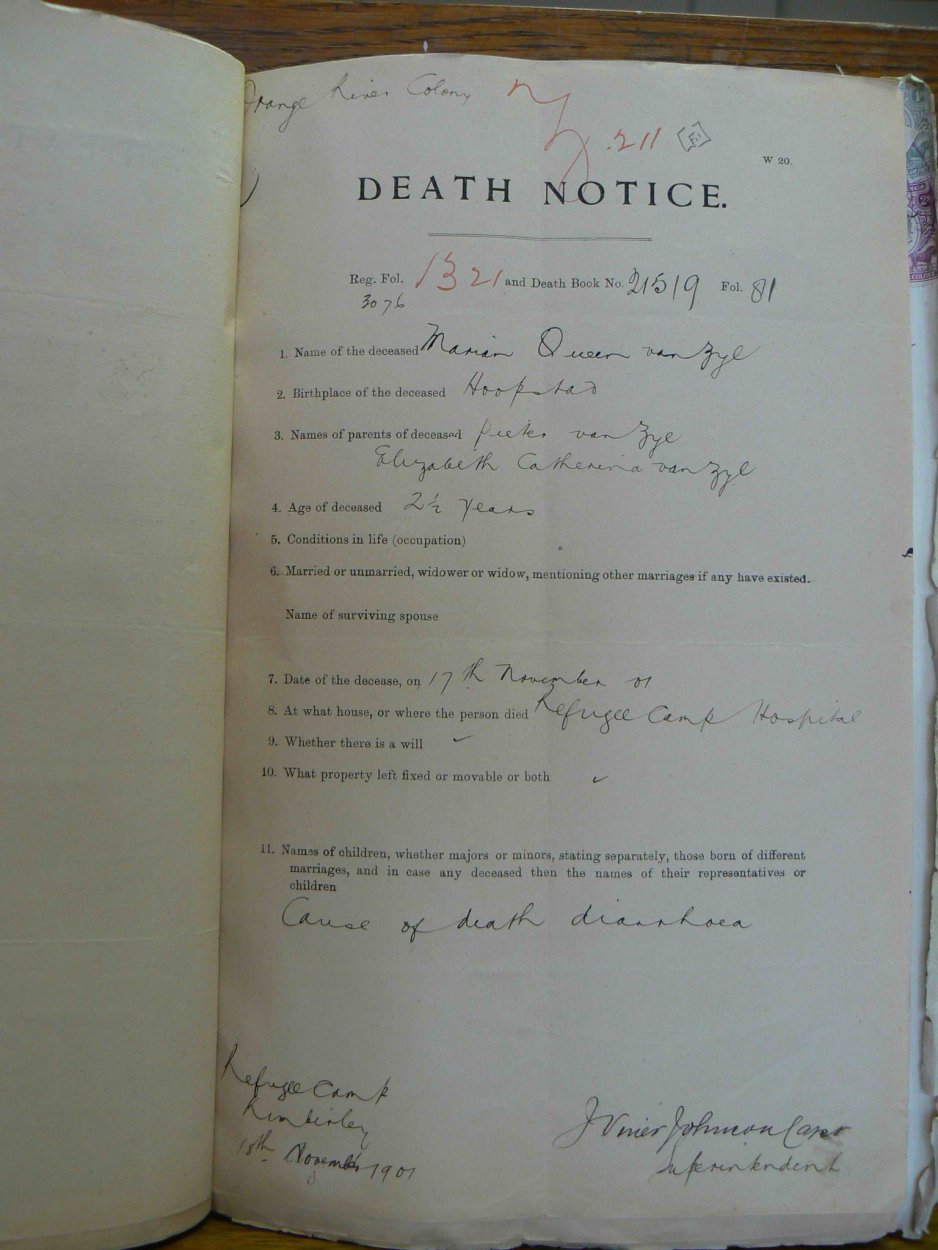 Orange River Colony
211
W 20.
DEATH NOTICE.
Reg. Fol. 1321 and Death Book No. 21519 Fol. 81
3076
1. Name of the deceased Marian Queen van Zyl
2. Birthplace of the deceased Hoopstad
3. Names of parents of deceased Pieter van Zyl
Elizabeth Catherina van Zyl
4. Age of deceased 2½ years
5. Conditions in life (occupation)
6. Married or unmarried, widower or widow, mentioning other marriages if any have existed.
Name of surviving spouse
7. Date of the decease, on 17th November 01
8. At what house, or where the person died Refugee Camp Hospital
9. Whether there is a will
10. What property left fixed or movable or both
11. Names of children, whether majors or minors, stating separately, those born of different
marriages, and in case any deceased then the names of their representatives or
children
Cause of death diarrhoea
Refugee Camp
Kimberley
18th November 1901
J Viner Johnson Capt
Superintendent